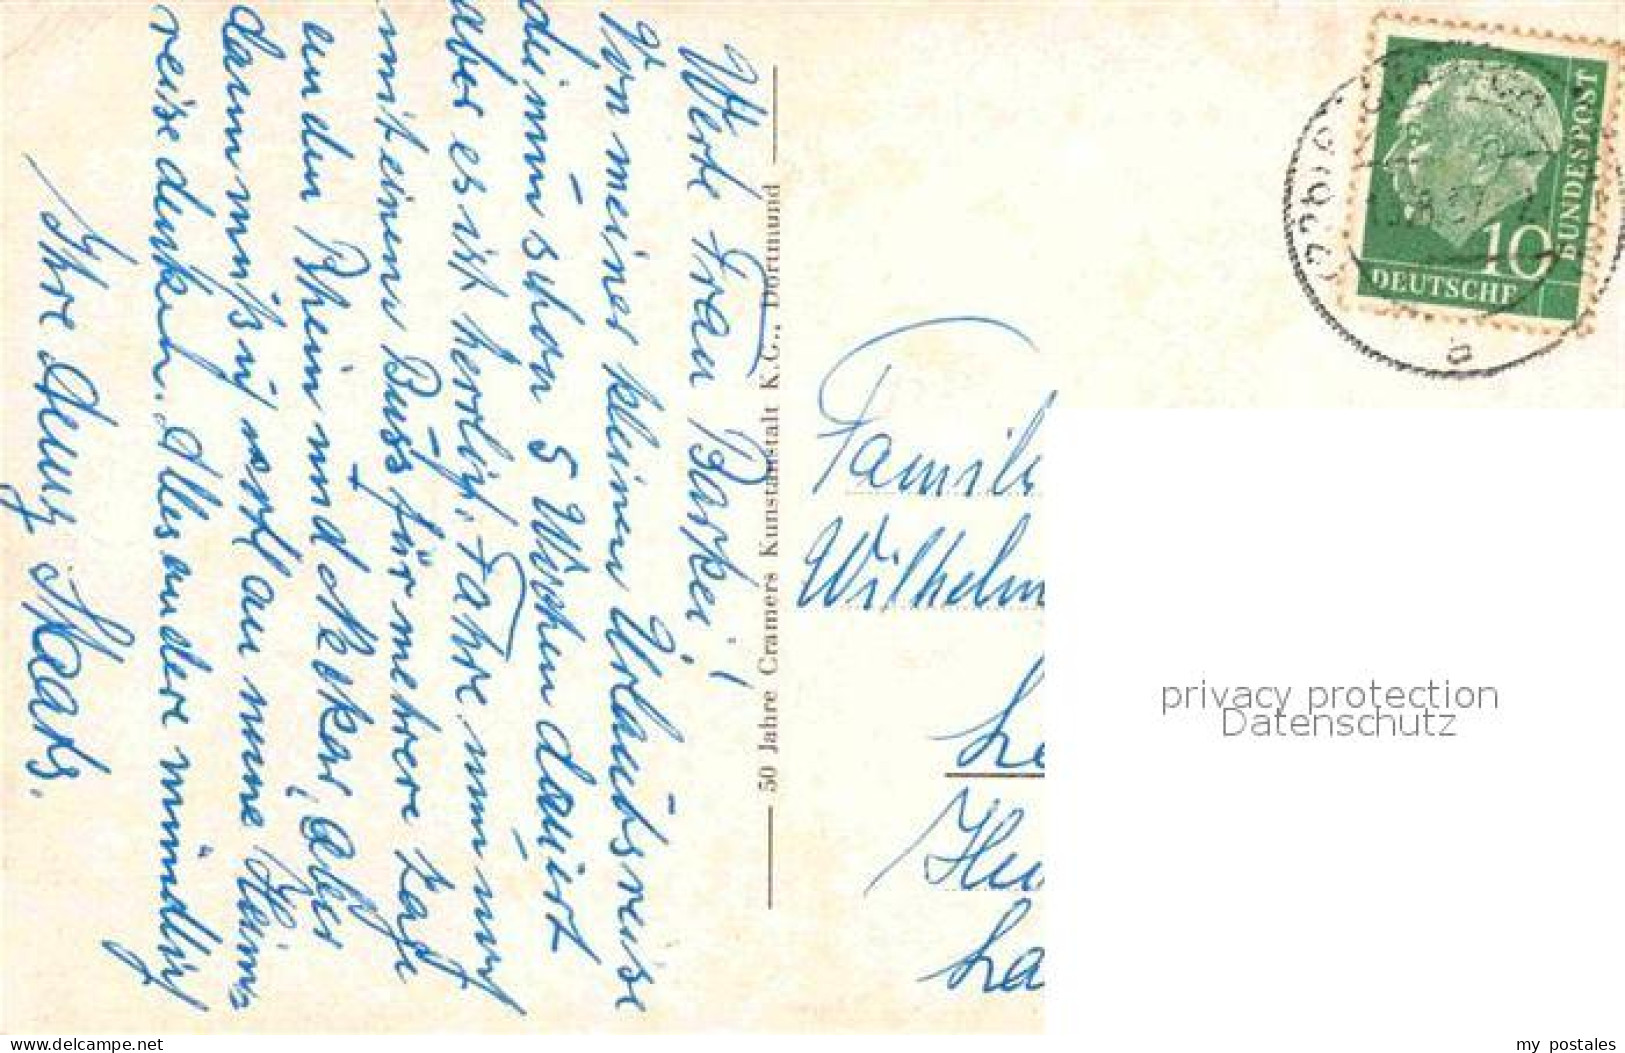 Werte Frau Barkei!
Von meiner kleinen Urlaubsreise
die nun schon 5 Wochen dauert
aber es ist herrlich. Fahre nun
mit einem Buss für mehrere Tage
an den Rhein und Neckar, aber
dann muß ich wohl an meine Heim
reise denken. Alles andere mündlich
Ihre
50 Jahre Cramers Kunstanstalt K.G., Dortmund
DEUTSCHE
BUNDESPOST
10
Famili
Wilhelm
La
privacy protection
Datenschutz
my-lo-shop.de
my postales